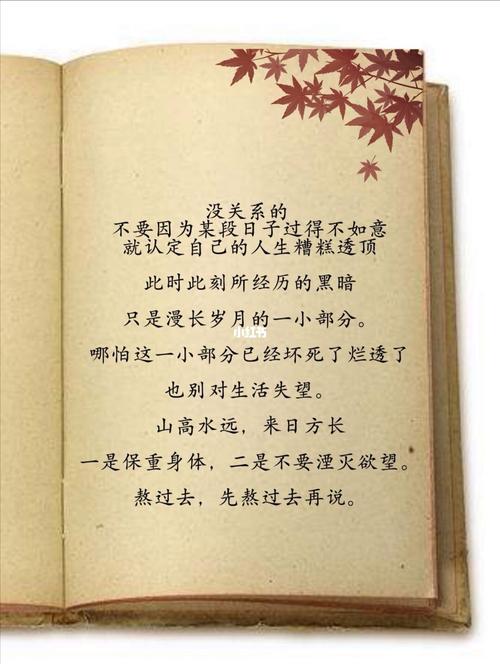 没关系的
不要因为某段日子过得不如意
就认定自己的人生糟糕透顶
此时此刻所经历的黑暗
只是漫长岁月的一小部分。
小红书
哪怕这一小部分已经坏死了烂透了
也别对生活失望。
山高水远，来日方长
一是保重身体，二是不要湮灭欲望。
熬过去，先熬过去再说。